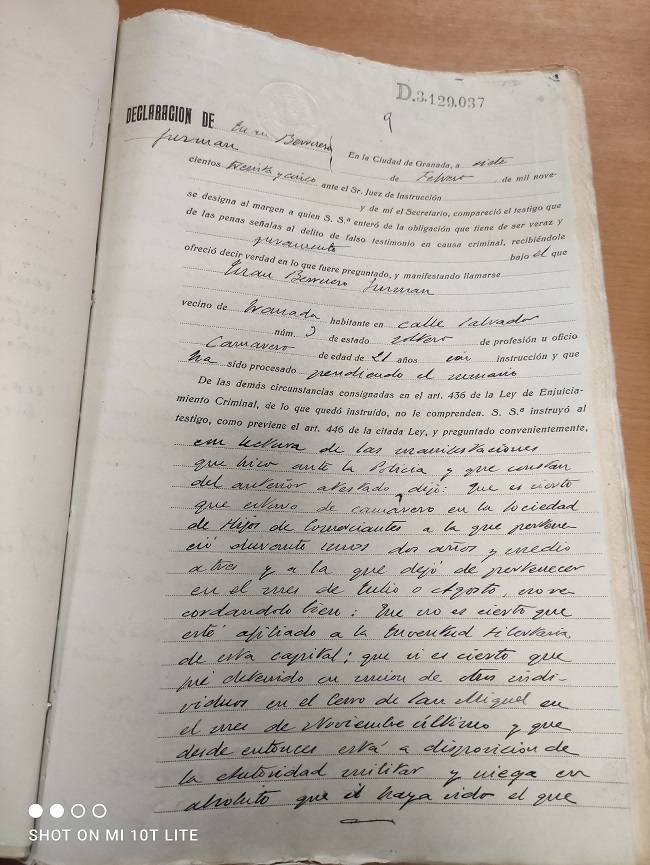 D.3.129.037
9
DECLARACION DE Juan Berruero
Guzman
En la Ciudad de Granada, a siete
de Febrero de mil nove-
cientos treinta y cinco ante el Sr. Juez de Instrucción
y de mí el Secretario, compareció el testigo que
se designa al margen a quien S. S.ª enteró de la obligación que tiene de ser veraz y
de las penas señalas al delito de falso testimonio en causa criminal, recibiéndole
juramento bajo el que
ofreció decir verdad en lo que fuere preguntado, y manifestando llamarse
Juan Berruero Guzman
vecino de Granada habitante en calle Salvador
núm. 3 de estado soltero de profesión u oficio
Camarero de edad de 21 años con instrucción y que
ha sido procesado pendiendo el sumario
De las demás circunstancias consignadas en el art. 436 de la Ley de Enjuicia-
miento Criminal, de lo que quedó instruído, no le comprenden. S. S.ª instruyó al
testigo, como previene el art. 446 de la citada Ley, y preguntado convenientemente,
con lectura de las manifestaciones
que hizo ante la Policia y que constan
del anterior atestado, dijo: Que es cierto
que estuvo de camarero en la Sociedad
de Hijos de Comerciantes a la que pertene-
ció durante unos dos años y medio
atras y a la que dejó de pertenecer
en el mes de Julio o Agosto, no re-
cordandolo bien: Que no es cierto que
esté afiliado a la Juventud Libertaria
de esta capital; que si es cierto que
fué detenido en union de otros indi-
viduos en el Cerro de San Miguel en
el mes de Noviembre último y que
desde entonces está a disposicion de
la Autoridad militar y niega en
absoluto que el haya sido el que
SHOT ON MI 10T LITE